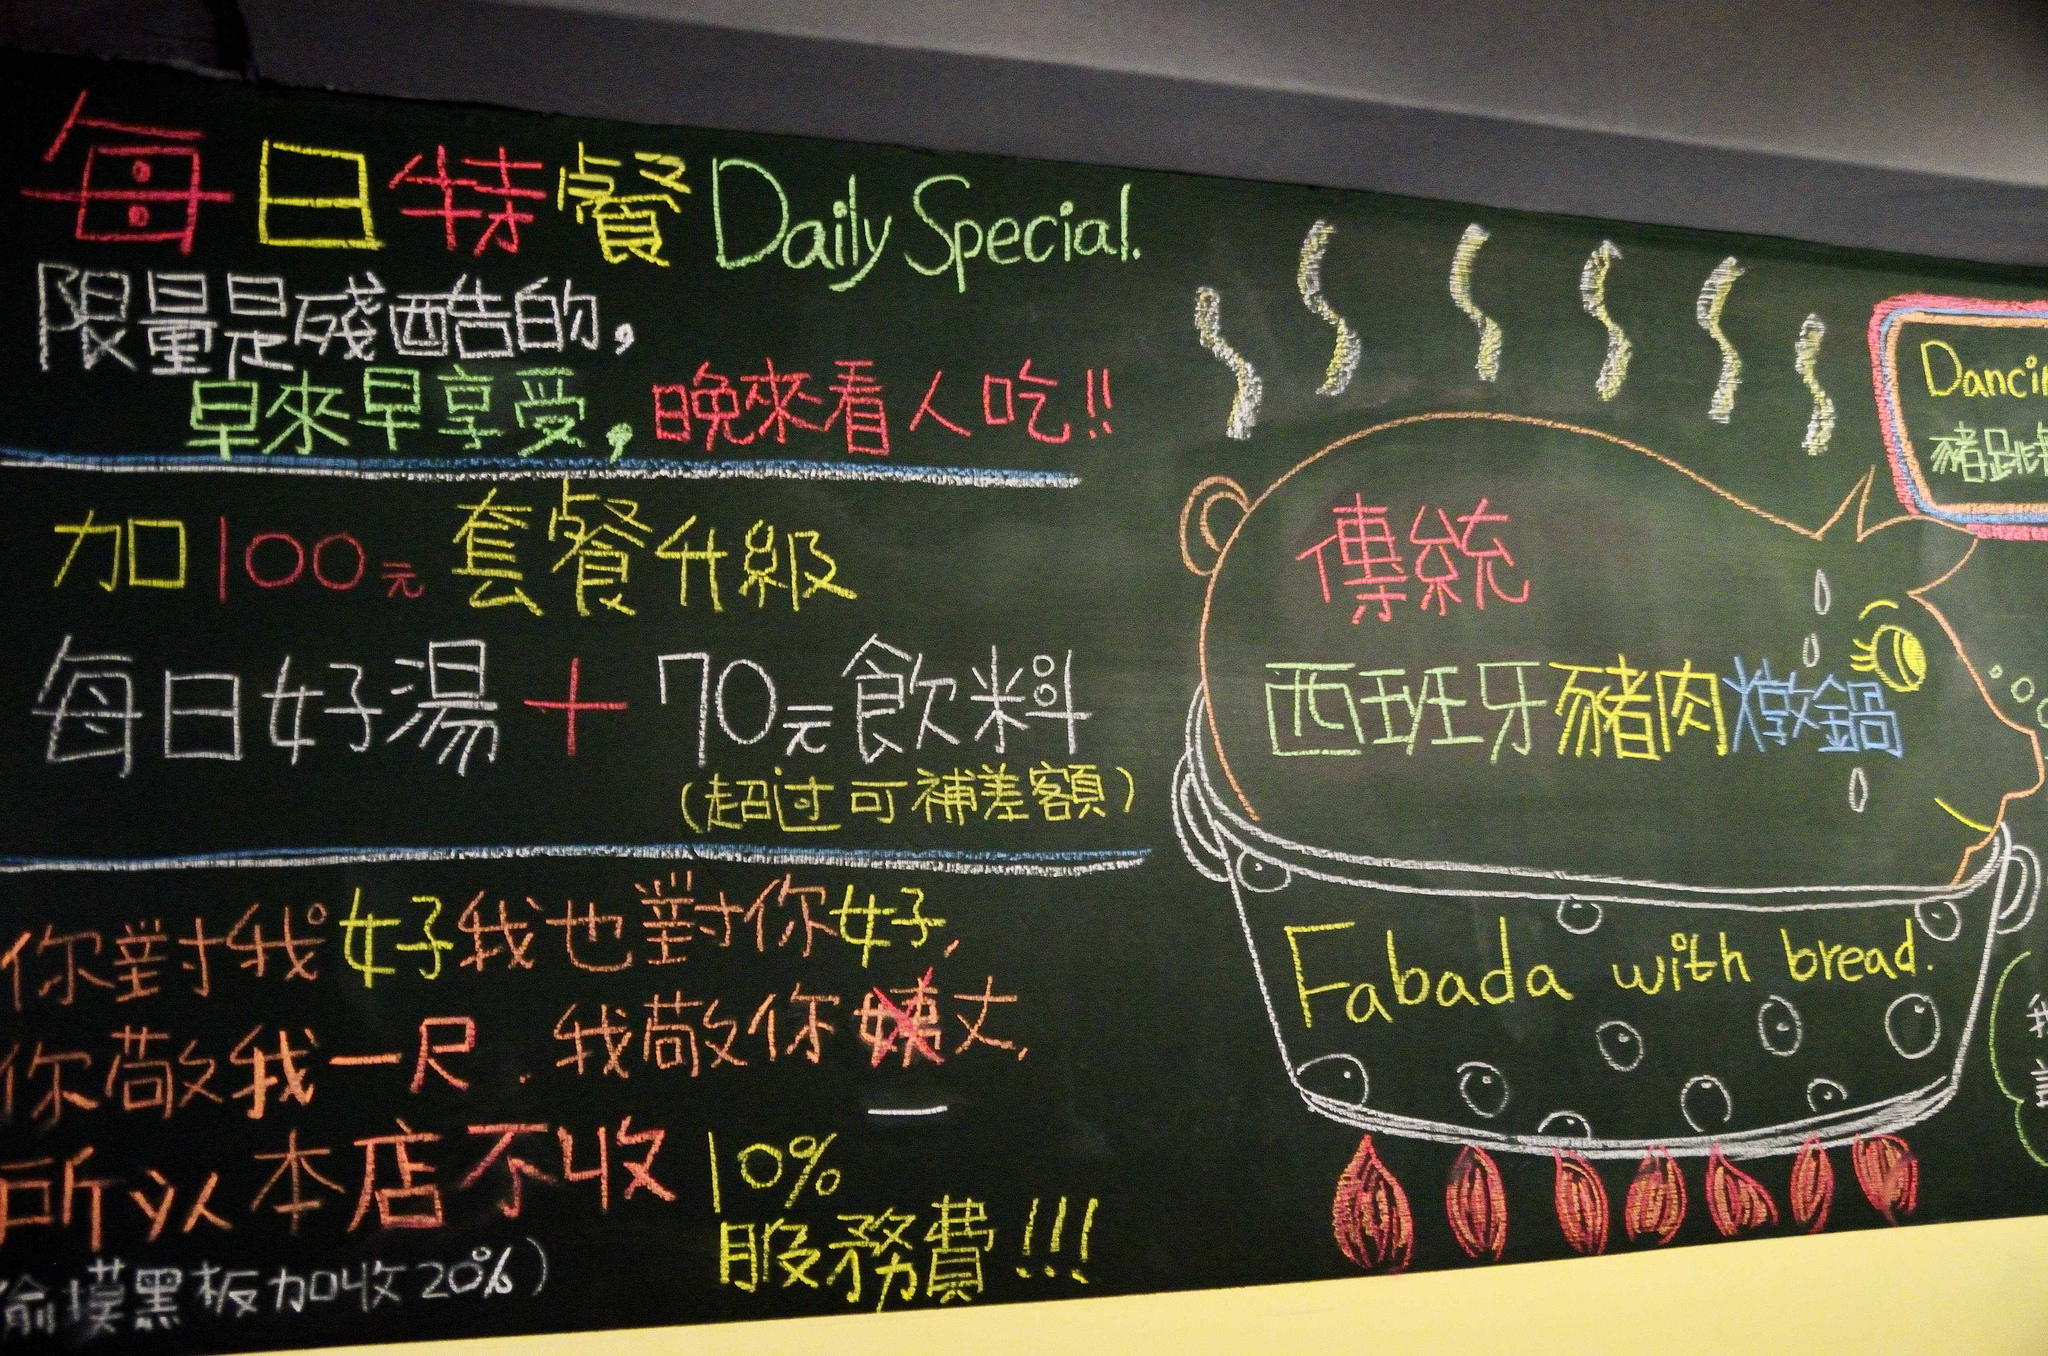 每日特餐 Daily Special.
限量是殘酷的,
早來早享受,晚來看人吃!!
加100元套餐升級
每日好湯+70元飲料
(超过可補差額)
你對我好我也對你好,
你敬我一尺.我敬你 丈,
一
所以本店不收10%
服務費!!!
偷摸黑板加收20%)
傳統
西班牙豬肉燉鍋
Fabada with bread.
豬跳
我